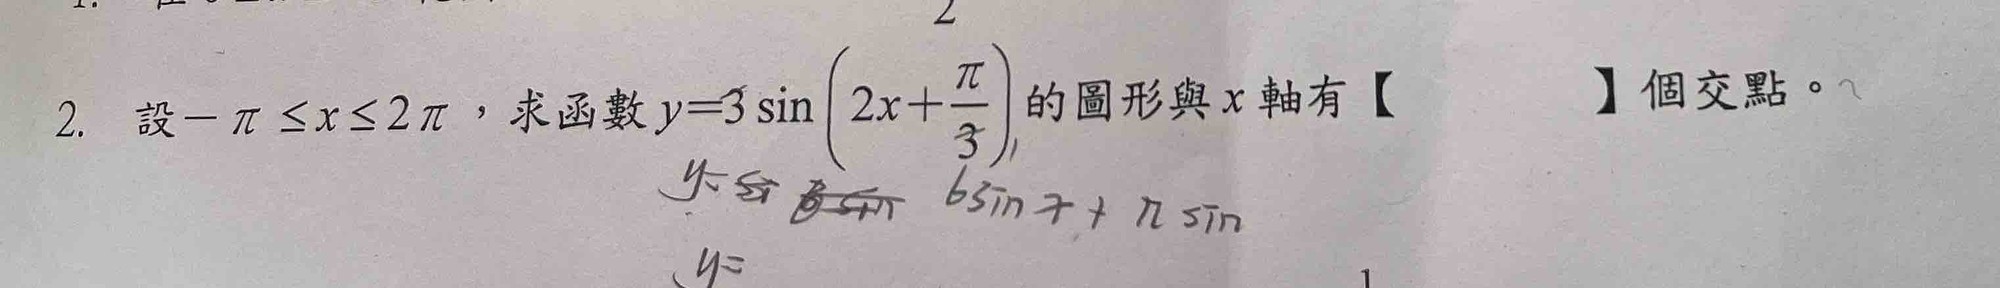 2
2. 設－π≤x≤2π，求函數 y=3 sin(2x+π/3) 的圖形與 x 軸有【 】個交點。
y= 6sin x + π sin
y=
1